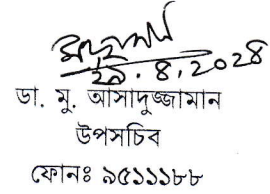 ২৯.৪.২০২৪
ডা. মু. আসাদুজ্জামান
উপসচিব
ফোনঃ ৯৫১১১৮৮